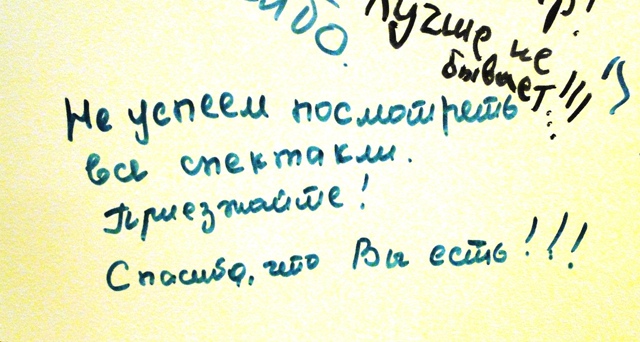 Лучше не
бывает!!!
Не успеем посмотреть
все спектакли.
Приезжайте!
Спасибо, что Вы есть!!!